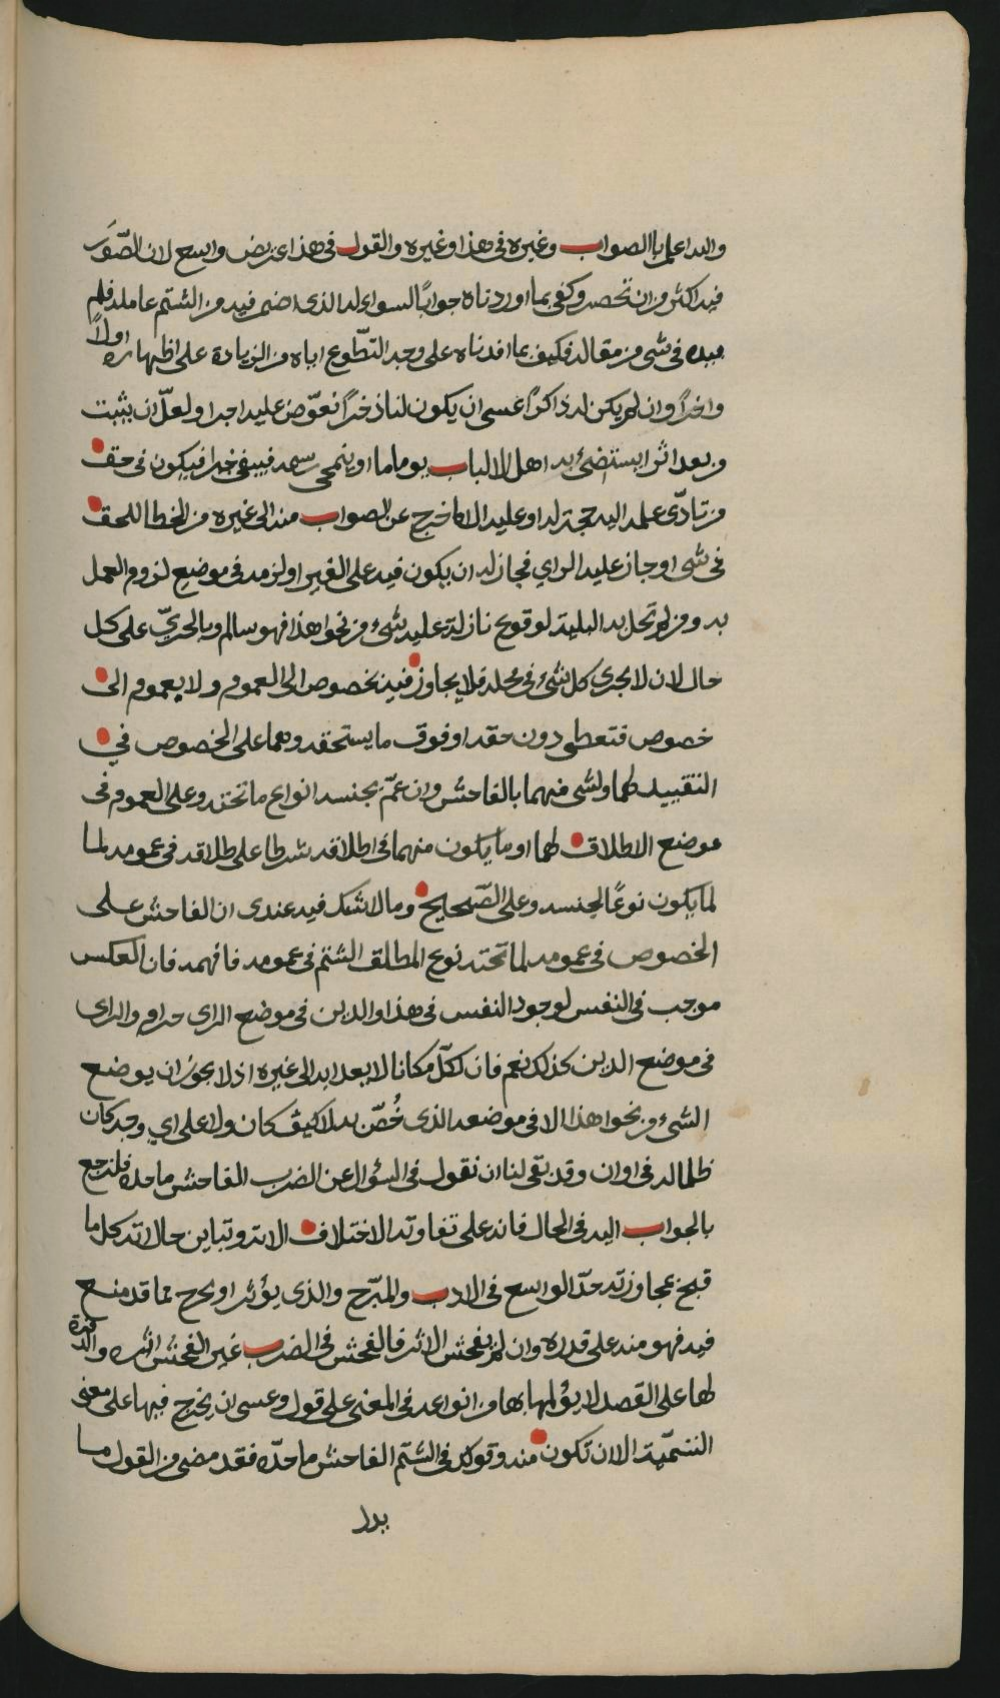 والله اعلم باالصواب وغيره في هذا وغيره والقول في هذا عريض واسع لان الصّوَر
فيه اكثر من ان تحصر وكفى بما اوردناه جوابًا لسواءله الذى اضمر فيه من الشتم عامله فلم
يبده في شى من مقاله فكيف بما افدناه على وجه التطّوع اياه من الزيادة على اظهاره اولاً
واخراً وان لم يكن له ذاكراً عسى ان يكون لنا ذخراً نعوّض عليه اجرا ولعلّ ان يثبت
من بعد اثرا يستضئ به اهل الالباب يوما ما او ينمحي رسمه فيبقى خبرا فيكون في حق
من تادّى علمه اليه حجة له او عليه الا ما خرج عن الصواب منه الى غيره من الخطا للحق
في شى او جاز عليه الراي فجاز له ان يكون فيه على الغير او لزمه في موضع لزوم العمل
به ومن لم تحل به البلية لوقوع نازلة عليه بشئ من نحو هذا فهو سالم وبالحريّ على كل
حال لان لا يجرى كل شئ في محله فلا يجاوز فيه بخصوص الى العموم ولا بعموم الى
خصوص فتعطى دون حقه او فوق ما يستحقه وهما على الخصوص في
التقييد لهما ولشى منهما بالفاحش وان عمّ بجنسه انواع ما تحته وعلى العموم في
موضع الاطلاق لهما او ما يكون منهما في اطلاقه شرطا على طلاقه في عمومه لما
لما يكون نوعًا لجنسه وعلى الصّحيح وما لا شك فيه عندى ان الفاحش على
الخصوص في عمومه لما تحته نوع المطلق الشتم في عمومه فافهمه فان العكس
موجب في النفس لوجود النفس في هذا والدين في موضع الراى حرام والراى
في موضع الدين كذلك نعم فان لكلّ مكانا لا يعد ابه الى غيره اذ لا يجوز ان يوضع
الشئ من نحو هذا الا في موضعه الذى خُصّ به لا كيف كان ولا على اي وجه كان
ظلما له في اوان وقد بقى لنا ان نقول في السؤال عن الضرب الفاحش ما حده فلنرجع
بالجواب اليه في الحال فانه على تفاوته الاختلاف الاته وتباين حالاته كل ما
قبح بمجاوزته حدّ الواسع في الادب والمبّرح والذى يؤثر او يجرح مما قد منع
فيه فهو منه على قدره وان لم يفحش الاثر فالفحش في الضرب غير الفحش اثره والدقرة
لها على القصد لا يؤلمها بها من انواعه في المعنى على قول وعسى ان يخرج فيها على معنى
التسّمية الا ان تكون منه وقوله في الشتم الفاحش ما حدّه فقد مضى من القول ما
يدل